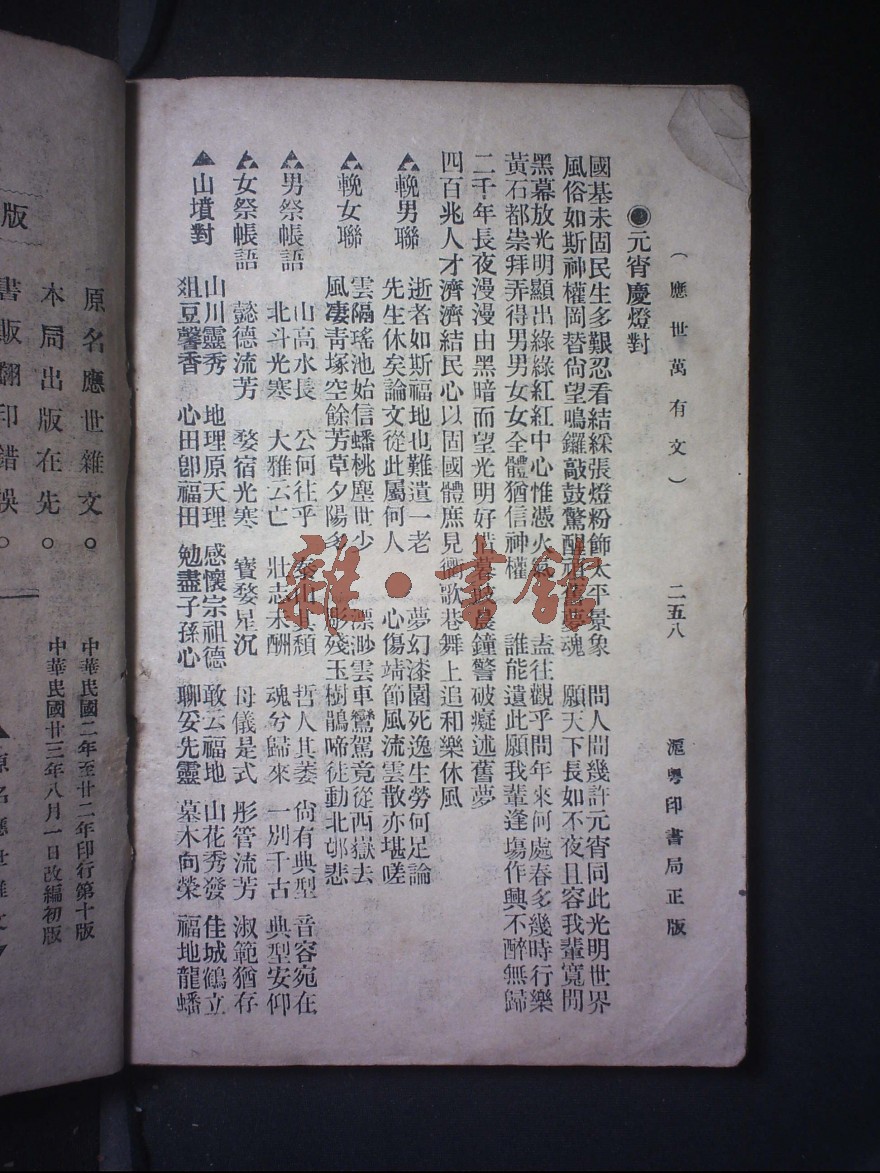 （應世萬有文） 二五八 滬粵印書局正版
元宵慶燈對
國基未固民生多艱忍看結綵張燈粉飾太平景象 問人間幾許元宵同此光明世界
風俗如斯神權罔替尙望鳴鑼敲鼓驚醒 魂 願天下長如不夜且容我輩寬閒
黑幕放光明顯出綠綠紅紅中心惟憑火氣 盍往觀乎問年來何處春多幾時行樂
黃石都崇拜弄得男男女女全體猶信神權 誰能遣此願我輩逢塲作興不醉無歸
二千年長夜漫漫由黑暗而望光明好 暮 晨鐘警破癡迷舊夢
四百兆人才濟濟結民心以固國體庶見衢歌巷舞上追和樂休風
▲輓男聯
逝者如斯福地也難遺一老 夢幻漆園死逸生勞何足論
先生休矣論文從此屬何人 心傷靖節風流雲散亦堪嗟
▲輓女聯
雲隔瑤池始信蟠桃塵世少 漂渺雲車鸞駕竟從西嶽去
風凄靑塚空餘芳草夕陽多 殘玉樹鵑啼徒動北邙悲
▲男祭帳語
山高水長 公何往乎 泰山其頹 哲人其萎 尙有典型 音容宛在
北斗光寒 大雅云亡 壯志未酬 魂兮歸來 一別千古 典型安仰
▲女祭帳語
懿德流芳 婺宿光寒 寶婺星沉 母儀是式 彤管流芳 淑範猶存
▲山墳對
山川靈秀 地理原天理 感懷宗祖德 敢云福地 山花秀發 佳城鶴立
俎豆馨香 心田卽福田 勉盡子孫心 聊妥先靈 墓木向榮 福地龍蟠
雜·書館
版
原名應世雜文。
本局出版在先。
書版翻印錯誤。
中華民國二年至廿二年印行第十版
中華民國廿三年八月一日改編初版
▲原名應世雜文